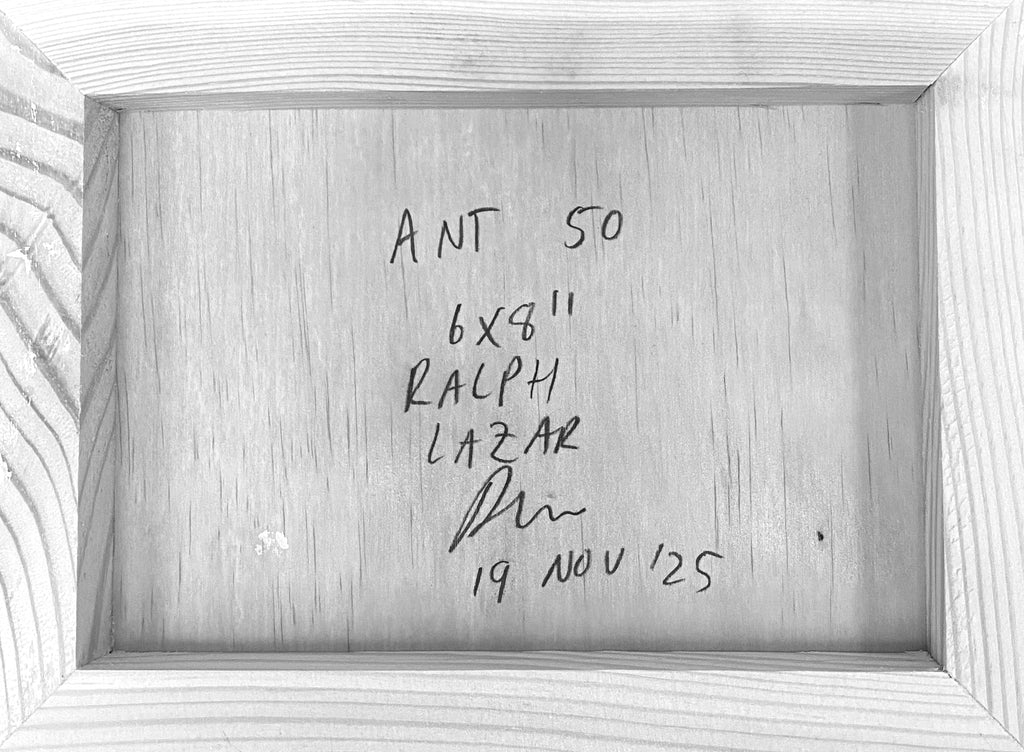 ANT 50
6X8"
RALPH
LAZAR
19 NOV '25